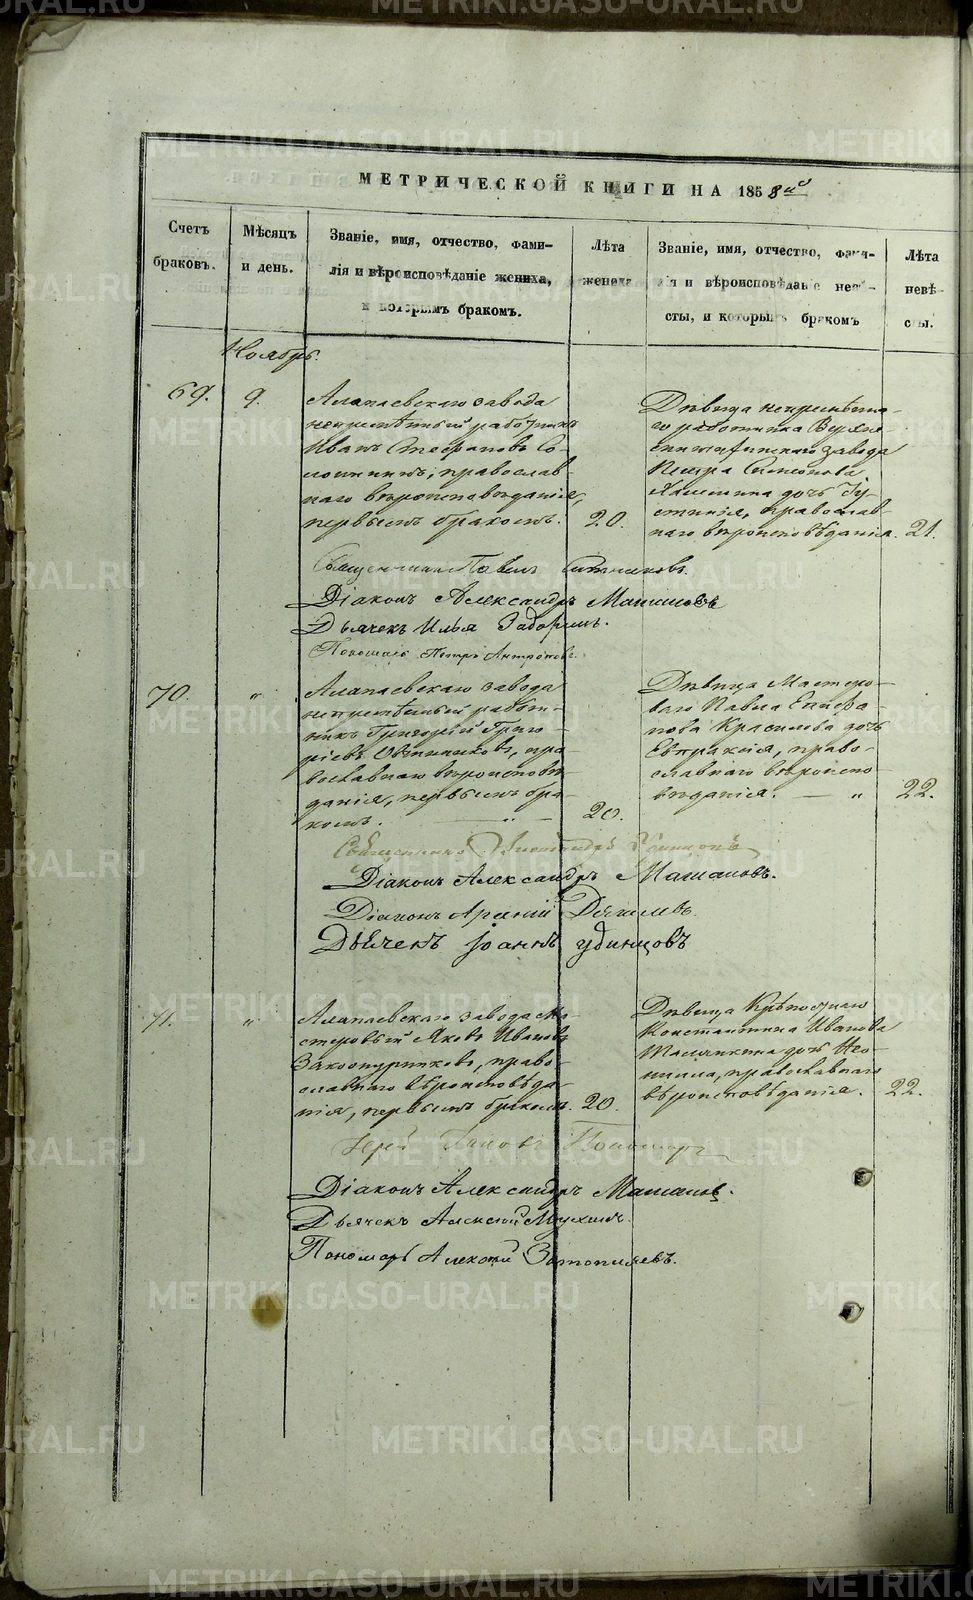 МЕТРИЧЕСКОЙ КНИГИ НА 1858й
Счетъ
браковъ.
Мѣсяцъ
и день.
Званіе, имя, отчество, фами-
лія и вѣроисповѣданіе жениха,
и которымъ бракомъ.
Лѣта
жениха
Званіе, имя, отчество, фами-
лія и вѣроисповѣданіе невѣ-
сты, и которымъ бракомъ
Лѣта
невѣ-
сты.
Ноябрь.
69.
9.
Алапаевскаго завода
непремѣнный работникъ
Иванъ Стефановъ Со-
православ-
наго вѣроисповѣданія,
первымъ бракомъ.
20.
Дѣвица непремѣнна-
го работника Верхне-
завода
Петра Симеонова
дочь Іу-
стинія, православ-
наго вѣроисповѣданія.
21.
Священникъ Павелъ
Діаконъ Александръ Мамановъ
Дьячекъ Илья
Пономарь Петръ Антроповъ
70.
"
Алапаевскаго завода
непремѣнный работ-
никъ Григорій Григо-
рьевъ Овчинниковъ, пра-
вославнаго вѣроисповѣ-
данія, первымъ бра-
комъ.
20.
Дѣвица Мастеро-
ваго Павла Епифа-
нова Красилова дочь
Евпраксія, право-
славнаго вѣроиспо-
вѣданія. — "
22.
Священникъ
Діаконъ Александръ Мамановъ.
Діаконъ
Дьячекъ Іоаннъ Удинцовъ
71.
"
Алапаевскаго завода Ма-
стеровый Яковъ Ивановъ
право-
славнаго вѣроисповѣда-
нія, первымъ бракомъ.
20.
Дѣвица Крѣпостнаго
Константина Иванова
дочь Нео-
нилла, православнаго
вѣроисповѣданія.
22.
Іерей
Діаконъ Александръ Мамановъ.
Дьячекъ Алексій Мухинъ.
Пономарь Алексій
METRIKI.GASO-URAL.RU